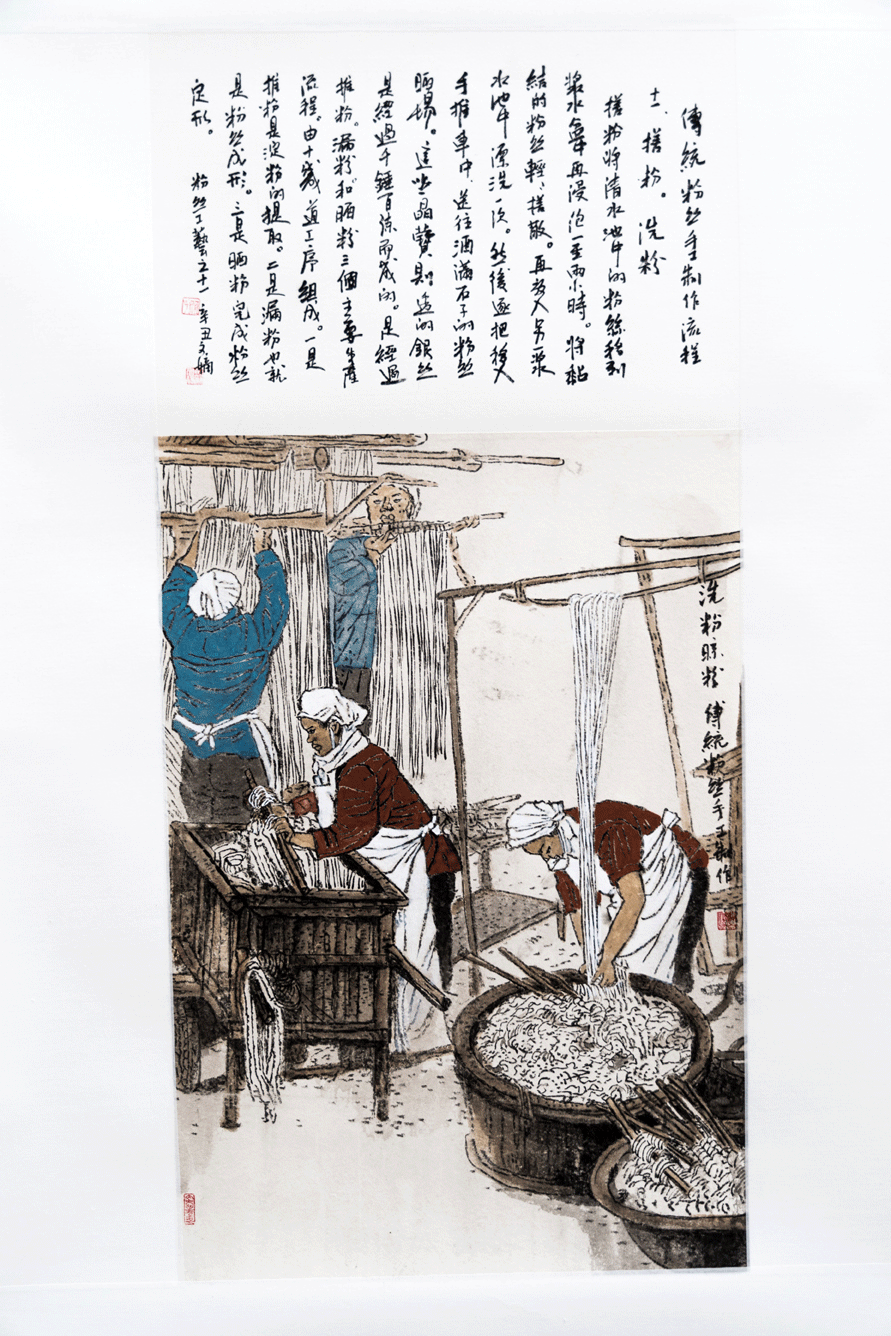 傳統粉丝手制作流程
十一、搓粉。洗粉
搓粉将清水池中的粉絲移到
浆水再浸泡一至兩小時。将黏
結的粉丝輕、搓散。再移入另一浆
水池中漂洗一次。然後逐把移入
手推車中,送往洒滿石子的粉丝
晒場。這些晶瑩剔透的銀丝
是經過千錘百练而成的。是經過
推粉。漏粉和晒粉三個主要生産
流程。由十幾道工序組成。一是
推粉是淀粉的提取。二是漏粉也就
是粉丝成形。三是晒粉完成粉丝
定形。 粉丝工藝之十一 辛丑
洗粉晾粉 傳統粉丝手工制作